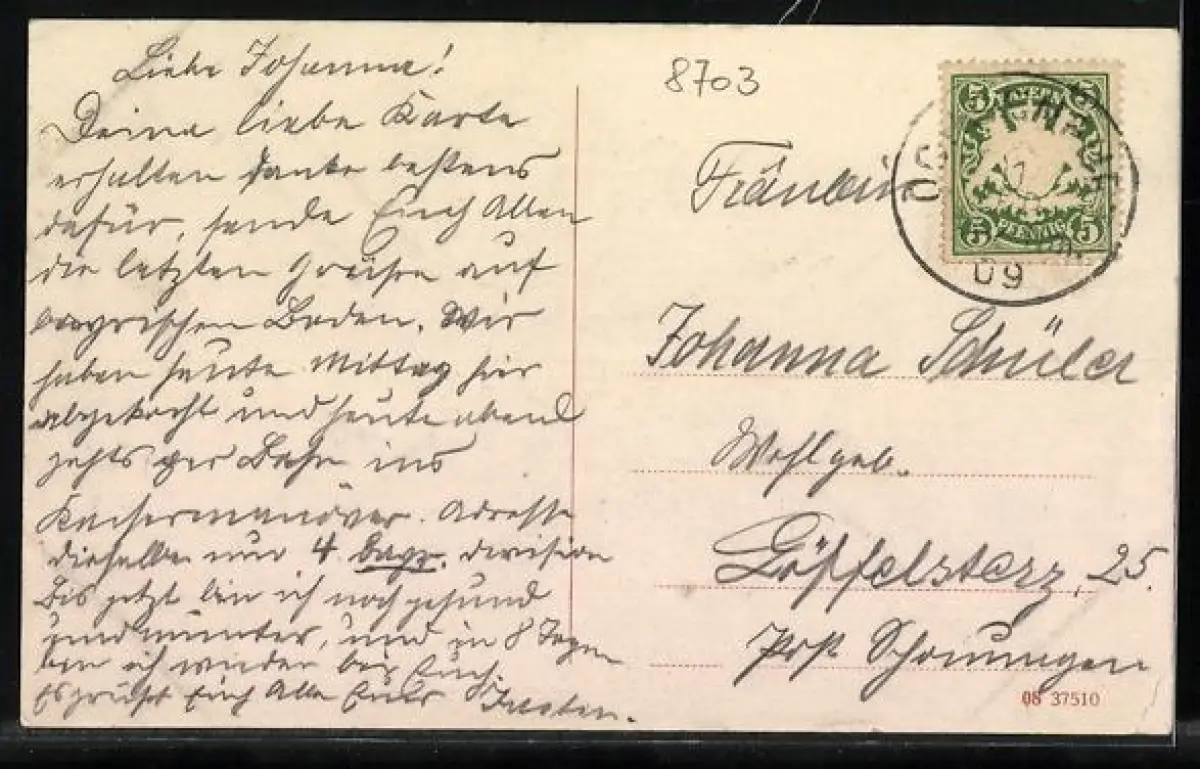 Liebe Johanna!
Deine liebe Karte
erhalten danke bestens
dafür, sende Euch Allen
die letzten Grüße auf
bayrischen Boden. Wir
haben heute Mittag hier
abgekocht und heute abend
gehts per Bahn ins
Kaisermanöver. Adresse
dieselbe nur 4 bayr. Division
Bis jetzt bin ich noch gesund
und munter, und in 8 Tagen
bin ich wieder bei Euch.
Es grüßt Euch Alle Euer
8703
BAYERN
5 5
PFENNIG
09
Fräulein
Johanna Schüler
Wohlgeb.
Löffelsterz, 25.
Post Schonungen
08 37510